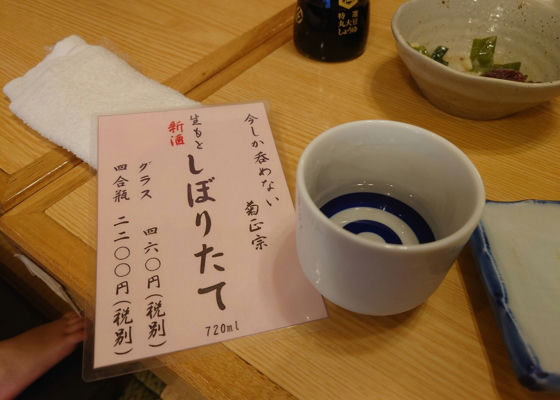 今しか呑めない
菊正宗
生もと
新酒
しぼりたて
720ml
グラス 四六〇円(税別)
四合瓶 二二〇〇円(税別)
選
特
丸大豆
しょうゆ